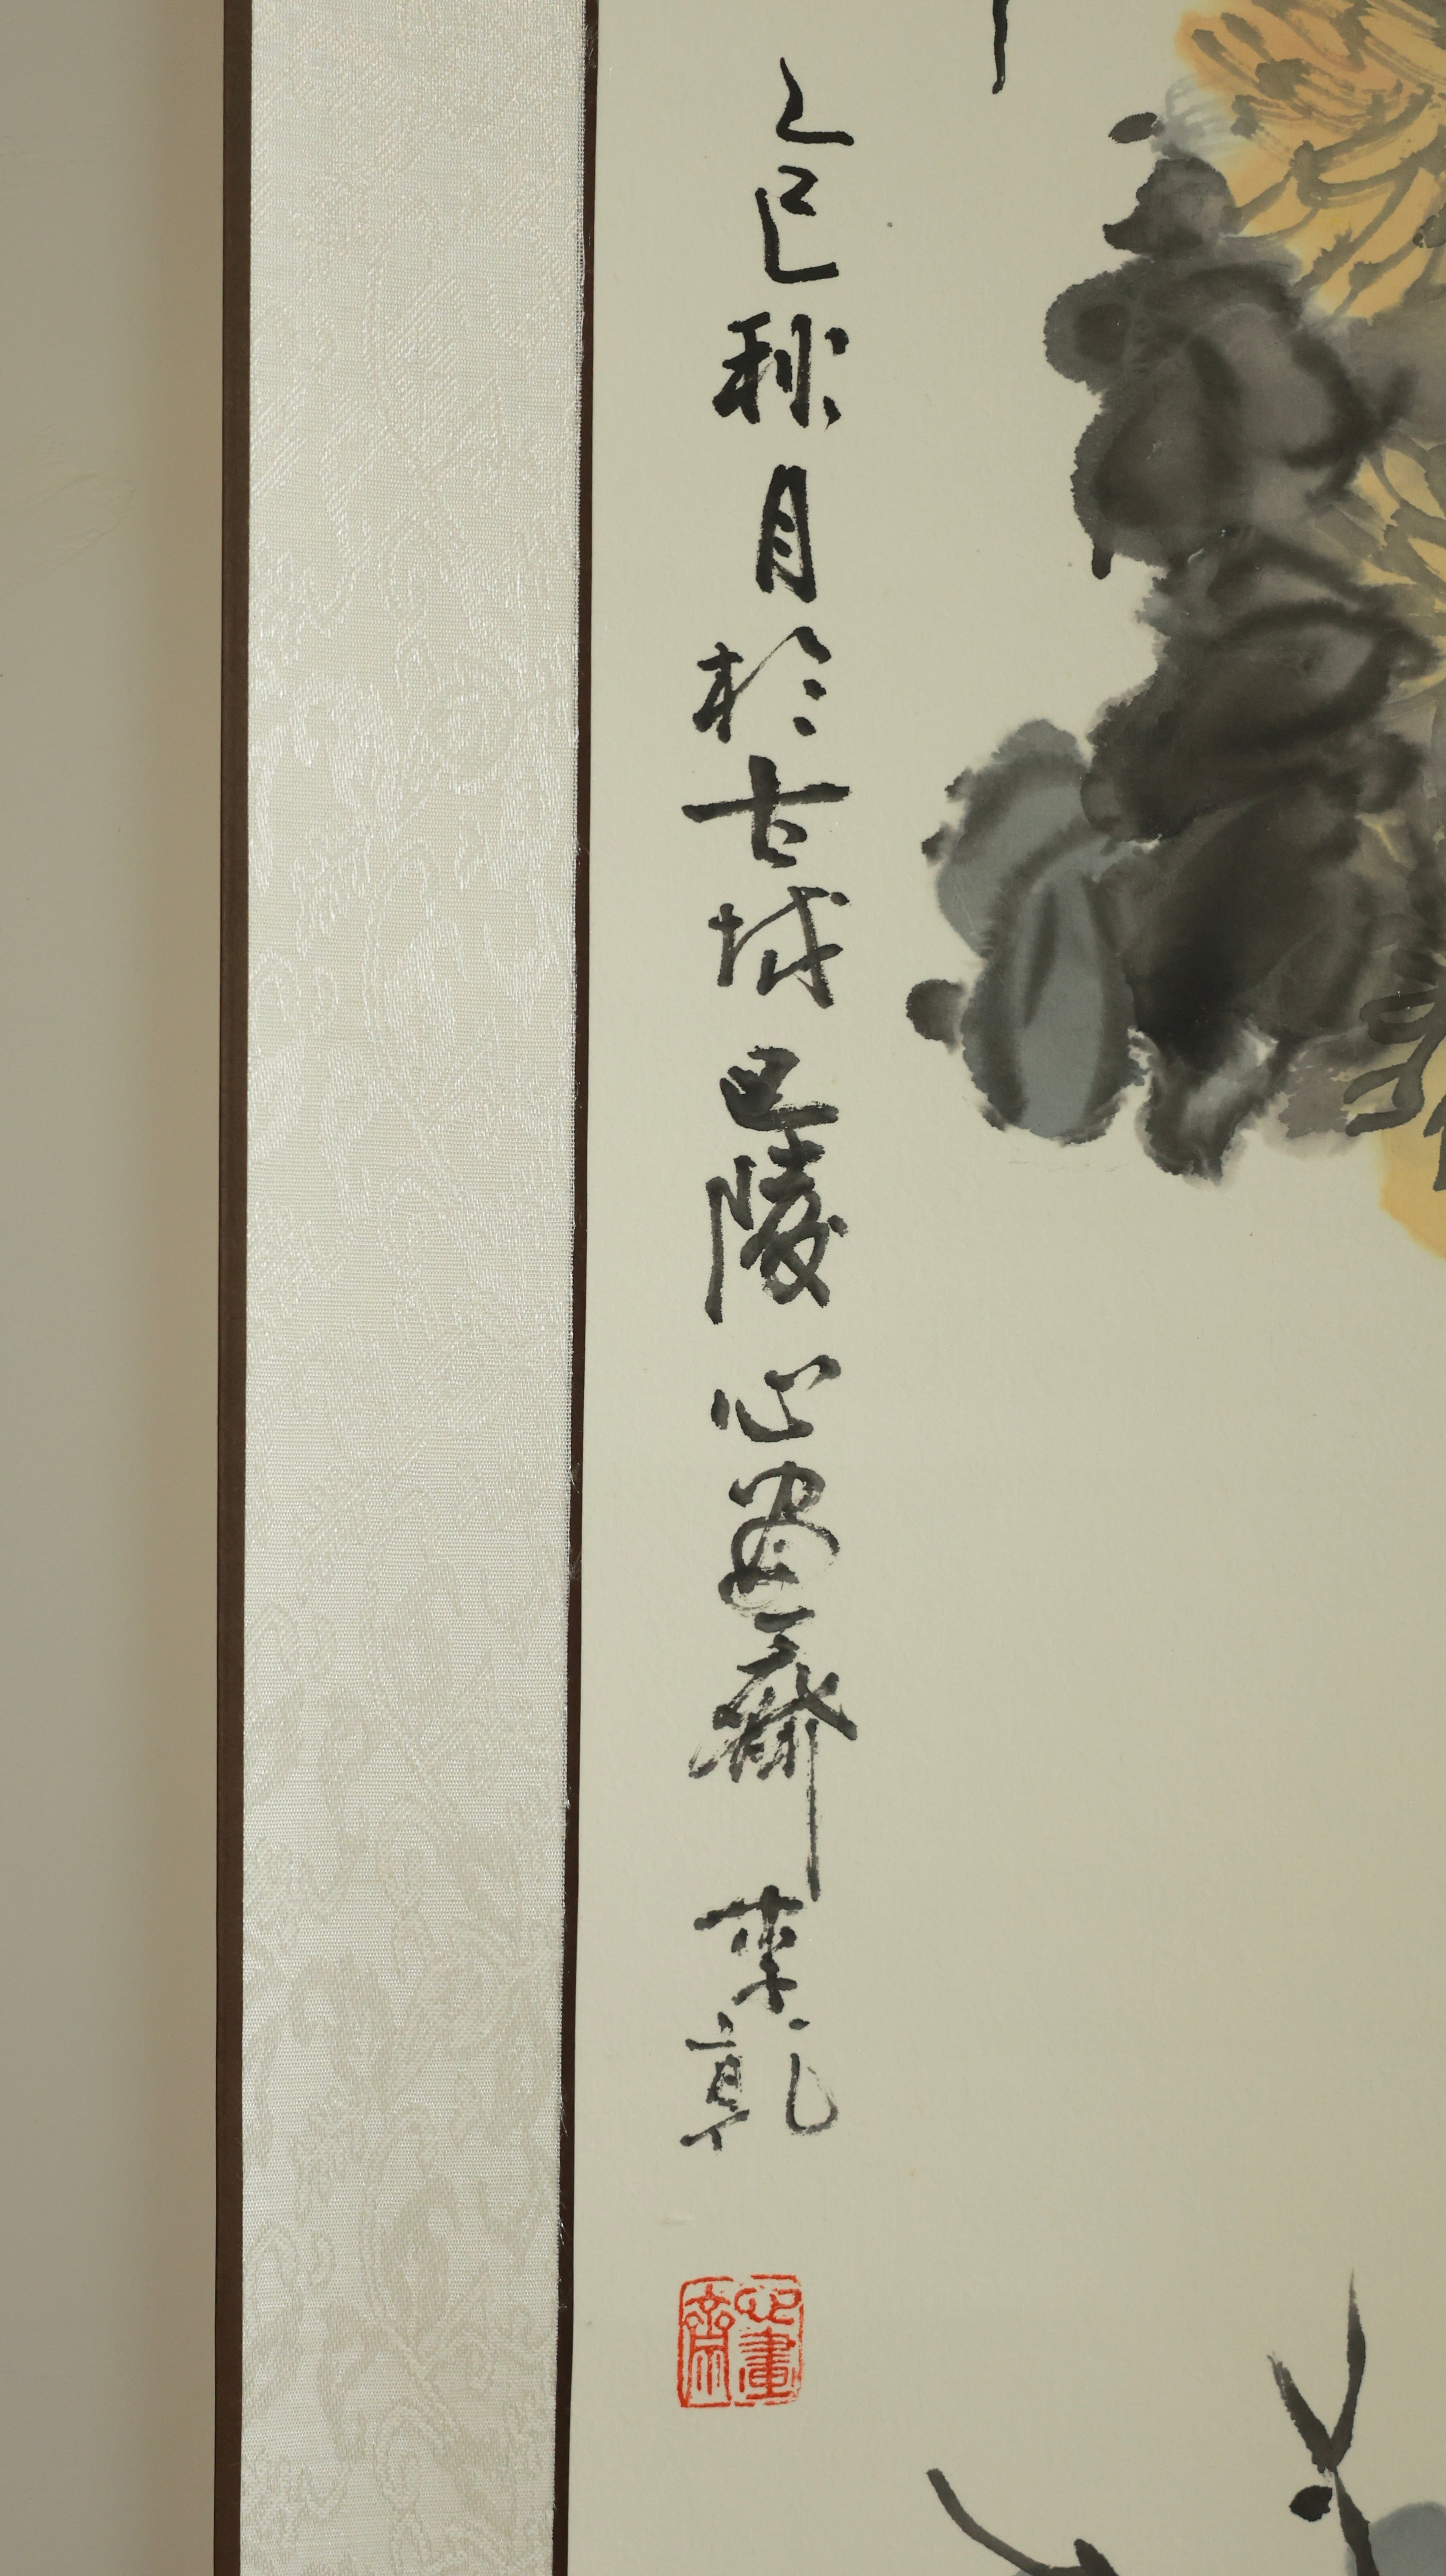 乙巳秋月於古城巴陵心畫齋李乾
心畫齋